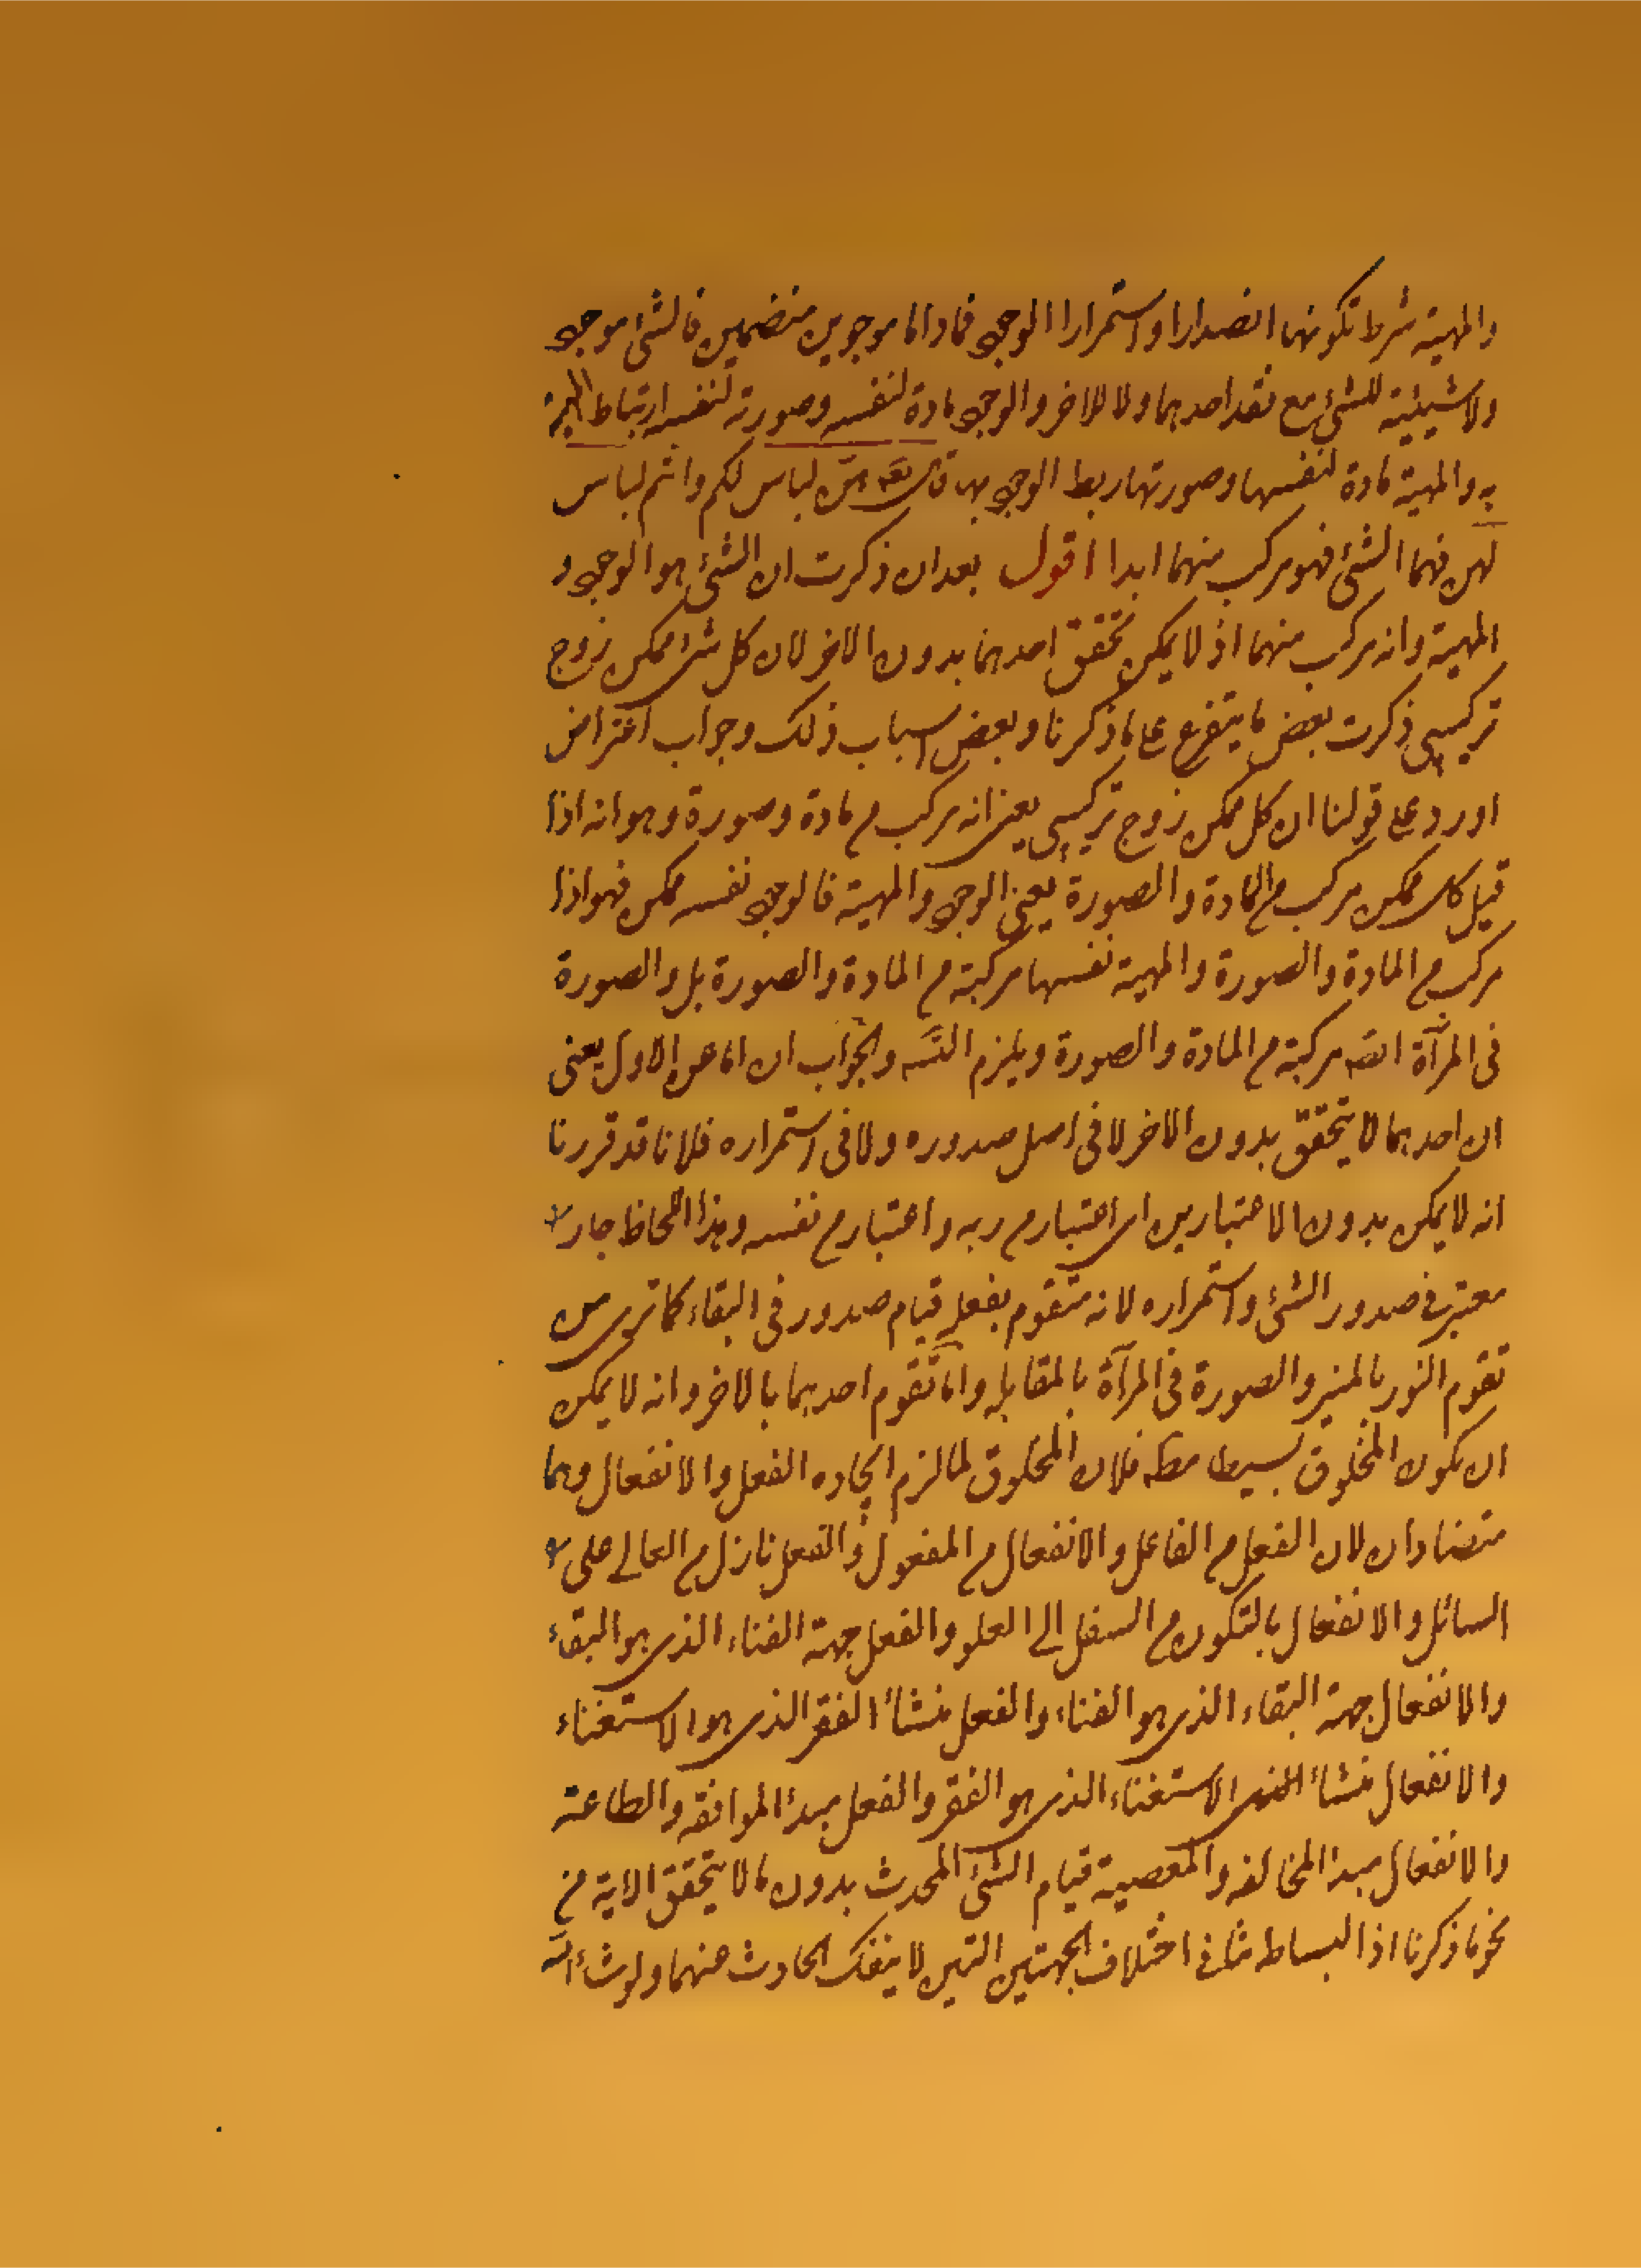 والمهية شرط تكونهما انصدارا واستمرارا الوجود فماداما موجودين منضمين فالشئ موجود
ولا شيئية للشئ مع فقد احدهما ولا للاخر والوجود مادة لنفسه وصورته لنفسه ارتباط المهية
به والمهية مادة لنفسها وصورتها ربط الوجود بها قال تعه هن لباس لكم وانتم لباس
لهن فهما الشئ فهو مركب منهما ابدا اقول بعد ان ذكرت ان الشئ هو الوجود و
المهية وانه مركب منهما اذ لا يمكن تحقق احدهما بدون الاخر لان كل شئ ممكن زوج
تركيبي ذكرت بعض ما يتفرع على ما ذكرنا وبعض اسباب ذلك وجواب اعتراض
اورد على قولنا ان كل ممكن زوج تركيبي يعني انه مركب م مادة وصورة وهو انه اذا
قيل كل ممكن مركب م المادة والصورة يعني الوجود والمهية فالوجود نفسه ممكن فهو اذا
مركب م المادة والصورة والمهية نفسها مركبة م المادة والصورة بل والصورة
في المرآة ايضه مركبة م المادة والصورة ويلزم التسه والجواب ان اما عن الاول يعني
ان احدهما لا يتحقق بدون الاخر لا في اصل صدوره ولا في استمراره فلانا قد قررنا
انه لا يمكن بدون الاعتبارين اى اعتبار م ربه واعتبار م نفسه وهذا اللحاظ جار
معتبر في صدور الشئ واستمراره لانه متقوم بفعل قيام صدور في البقاء كما ترى من
تقوم النور بالمنير والصورة في المرآة بالمقابل واما تقوم احدهما بالاخر وانه لا يمكن
ان يكون المخلوق بسيطا مطه فلان المخلوق لما لزم ايجاده الفعل والانفعال وهما
متضادان لان الفعل م الفاعل والانفعال م المفعول والفعل نازل م العالى على
السافل والانفعال بالتكون م السفل الى العلو والفعل جهة الفناء الذى هو البقاء
والانفعال جهة البقاء الذى هو الفناء والفعل منشأ الفقر الذى هو الاستغناء
والانفعال منشأ الاستغناء الذى هو الفقر والفعل مبدأ الموافقه والطاعة
والانفعال مبدأ المخالفه والمعصية قيام الشئ المحدث بدون ما لا يتحقق الاية
نحو ما ذكرنا اذ البساطه تنافى اختلاف الجهتين التين لا ينفك الحادث عنهما ولو شاء الله